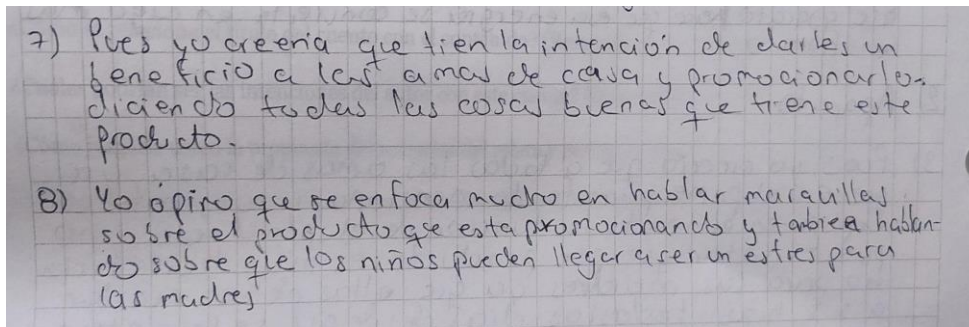 7) Pues yo creeria que tien la intención de darles un
beneficio a las amas de casa y promocionarlo.
diciendo todas las cosas buenas que tiene este
producto.
8) Yo opino que se enfoca mucho en hablar maravillas
sobre el producto que esta promocionando y tambien hablan-
do sobre que los niños pueden llegar a ser un estres para
las madres